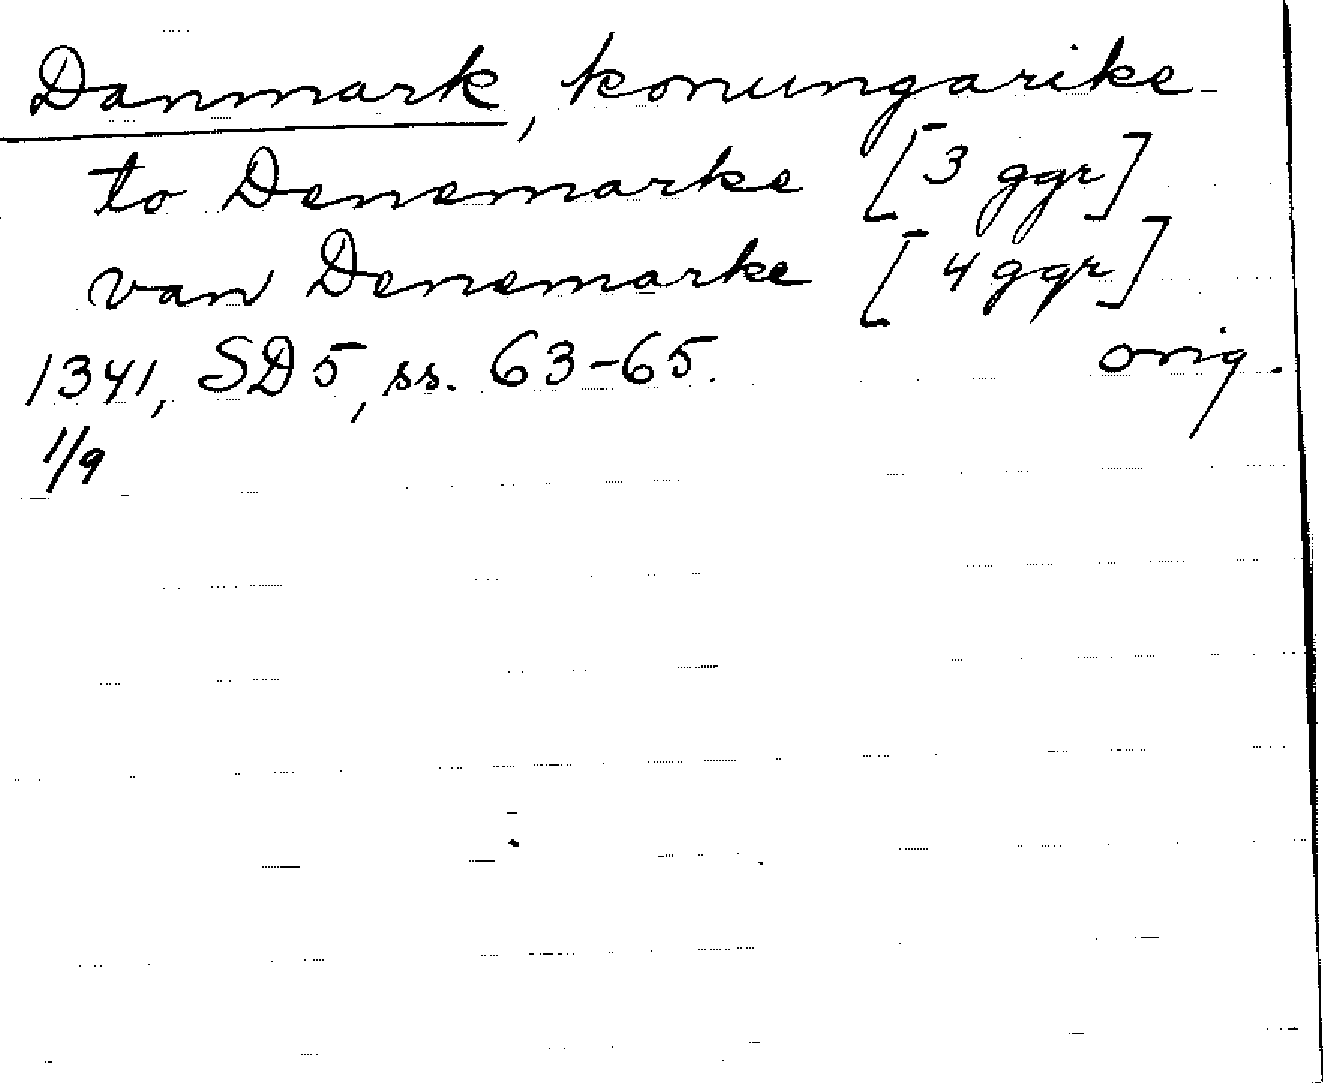 Danmark, konungarike
to Denemarke [3 ggr]
van Denemarke [4 ggr]
1341, SD 5, ss. 63-65. orig.
1/9